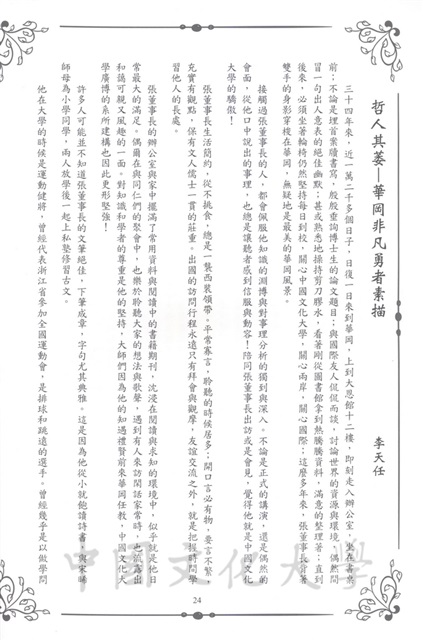 哲人其萎—華岡非凡勇者素描
李天任
三十四年來，近一萬二千多個日子，日復一日來到華岡，上到大恩館十二樓，即刻走入辦公室，坐在書桌
前；不論是埋首案牘書寫，殷殷垂詢博士生的論文題目；與國際友人侃侃而談，討論世界的資源與環境，偶然間
冒一句出人意表的絕佳幽默；甚或熟悉地操持剪刀膠水，看著剛從圖書館拿到熱騰騰資料，滿意的整理著；直到
後來，必須坐著輪椅仍然堅持每日到校，關心中國文化大學，關心兩岸，關心國際；這麼多年來，張董事長背著
雙手的身影穿梭在華岡，無疑地是最美的華岡風景。
接觸過張董事長的人，都會佩服他知識的淵博與對事理分析的獨到與深入。不論是正式的講演，還是偶然的
會面，從他口中說出的事理，也總是讓聽者感到信服與動容！陪同張董事長出訪或是會見，覺得他就是中國文化
大學的驕傲！
張董事長生活簡約，從不挑食，總是一襲西裝領帶。平常寡言，聆聽的時候居多；開口言必有物，要言不繁，
充實有觀點，保有文人儒士一貫的莊重。出國的訪問行程永遠只有拜會與觀摩，友誼交流之外，就是把握時間學
習他人的長處。
張董事長的辦公室與家中擺滿了常用資料與閱讀中的書籍期刊，沈浸在閱讀與求知的環境中，似乎就是他日
常最大的滿足。偶爾在與同仁們的聚會中，也樂於聆聽大家的想法與歌聲，遇到有人來訪閒話家常時，也流露出
和藹可親又風趣的一面。對知識和學者的尊重是他的堅持，大師們因為他的知遇禮賢前來華岡任教，中國文化大
學廣博的系所建構也因此更形堅強！
許多人可能並不知道張董事長的文筆絕佳，下筆成章，字句尤其典雅。這是因為他從小就飽讀詩書，與宋晞
師母為小學同學，兩人放學後一起上私塾修習古文。
他在大學的時候是運動健將，曾經代表浙江省參加全國運動會，是排球和跳遠的選手。曾經幾乎是以做學問
24
中國文化大學